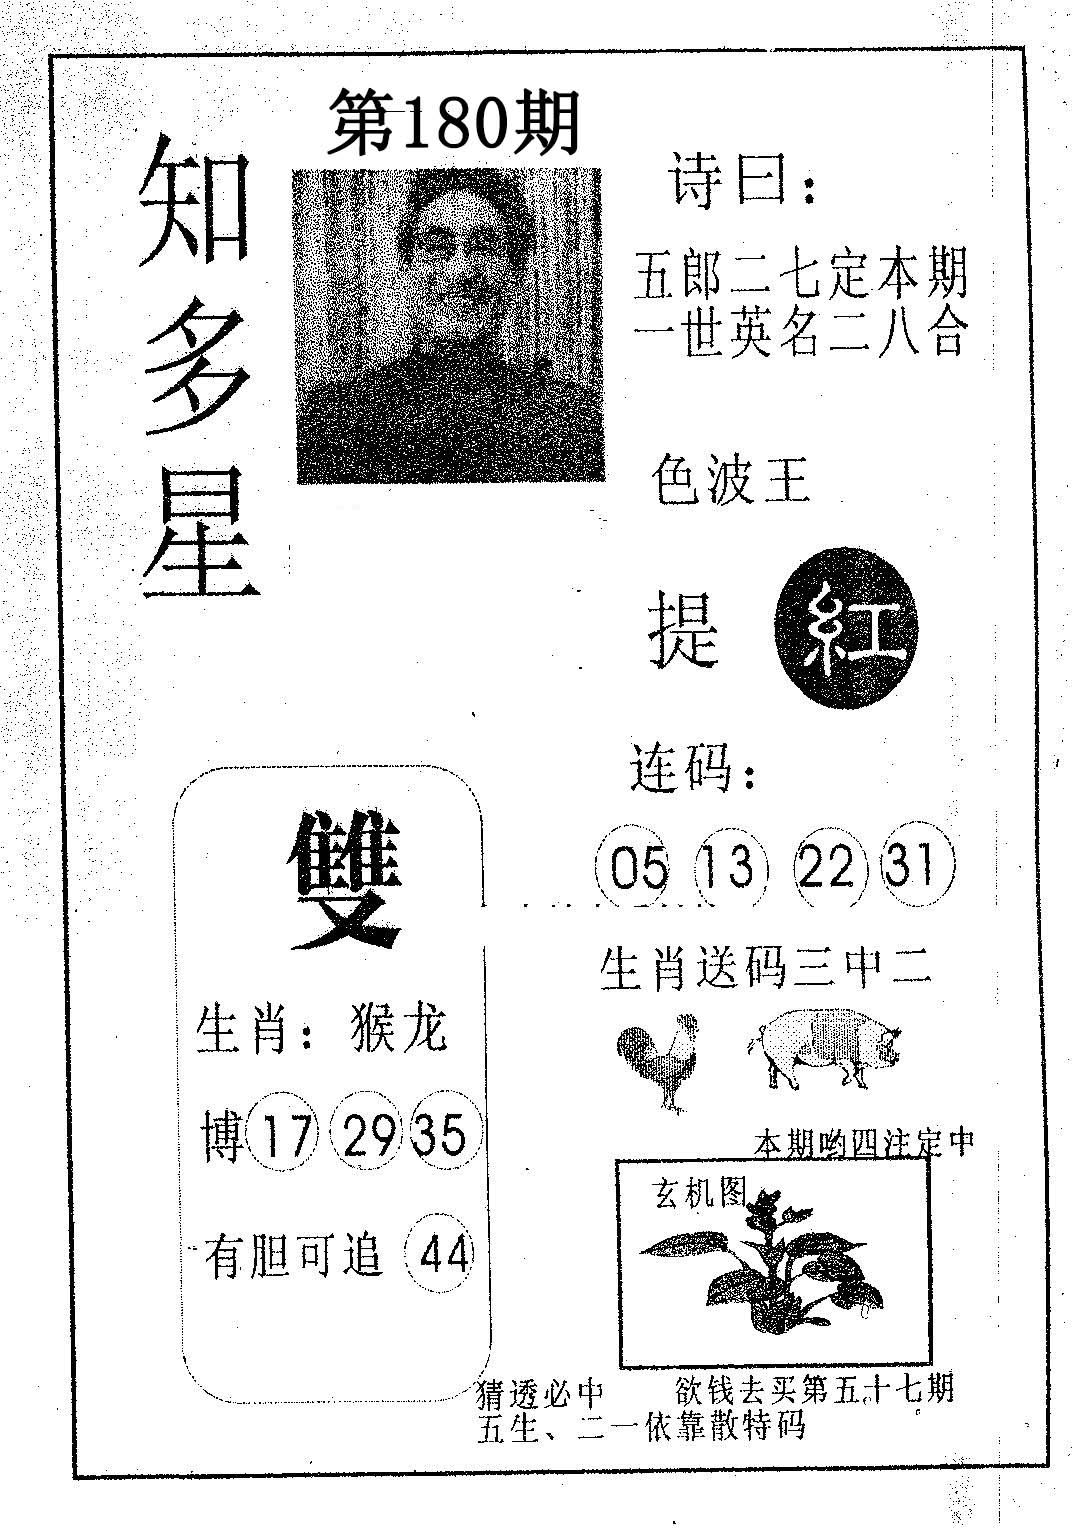 第180期
知多星
诗曰：
五郎二七定本期
一世英名二八合
色波王
提 紅
连码：
05 13 22 31
雙
生肖：猴龙
博 17 29 35
有胆可追 44
生肖送码三中二
本期哟四注定中
玄机图
猜透必中 欲钱去买第五十七期
五生、二一依靠散特码